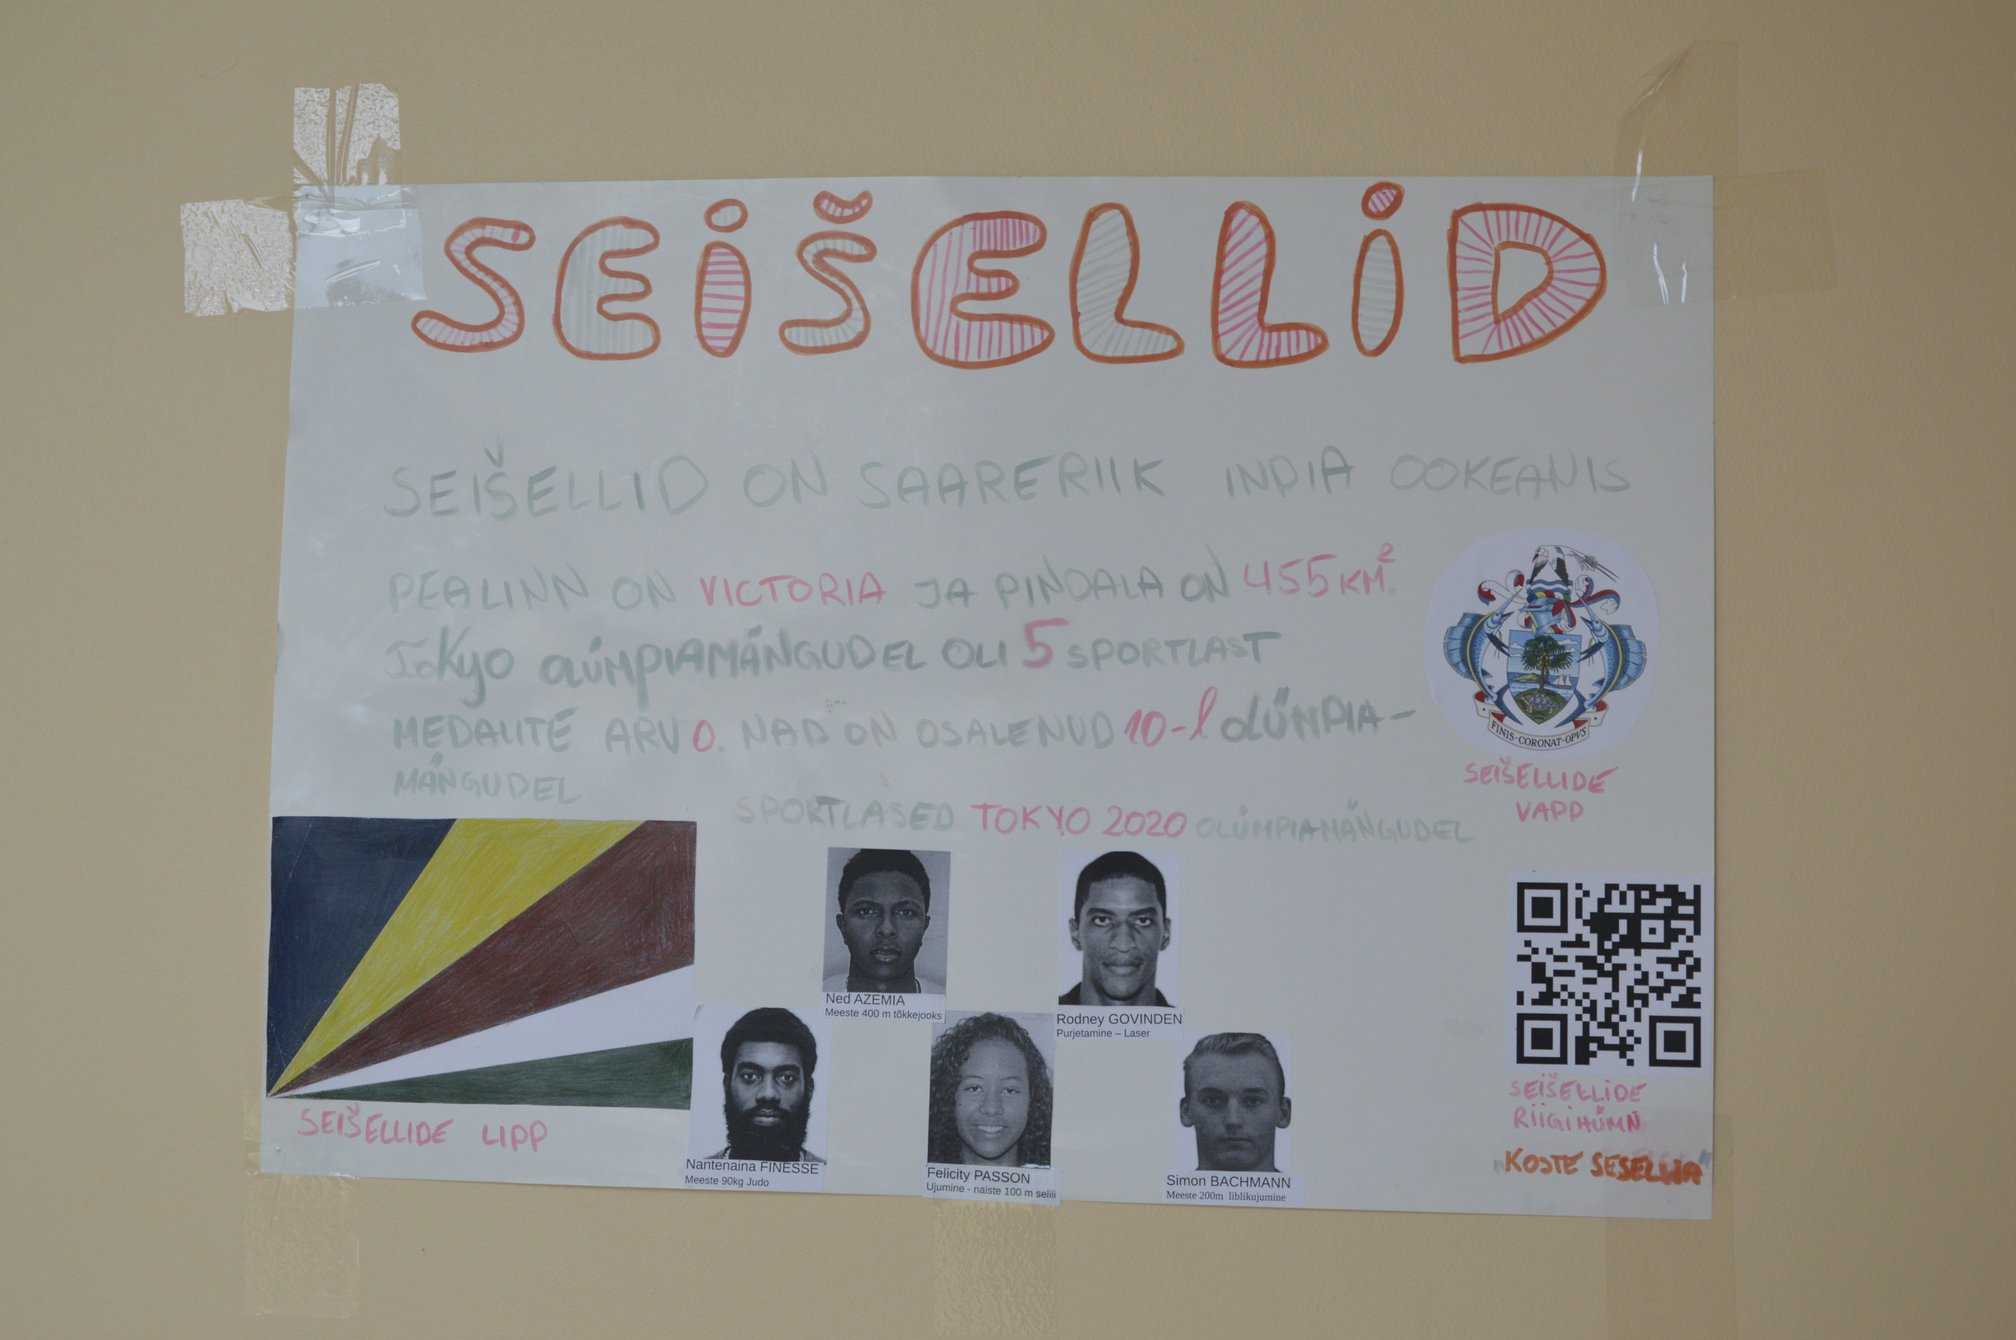 SEIŠELLID
SEIŠELLID ON SAARERIIK INDIA OOKEANIS
PEALINN ON VICTORIA JA PINDALA ON 455 KM².
TOKYO OLÜMPIAMÄNGUDEL OLI 5 SPORTLAST
MEDALITE ARV 0. NAD ON OSALENUD 10-l OLÜMPIA-
MÄNGUDEL
FINIS·CORONAT·OPVS
SEIŠELLIDE
VAPP
SPORTLASED TOKYO 2020 OLÜMPIAMÄNGUDEL
Ned AZEMIA
Meeste 400 m tõkkejooks
Rodney GOVINDEN
Purjetamine – Laser
Nantenaina FINESSE
Meeste 90kg Judo
Felicity PASSON
Ujumine - naiste 100 m selili
Simon BACHMANN
Meeste 200m liblikujumine
SEIŠELLIDE LIPP
SEIŠELLIDE
RIIGIHÜMN
"KOSTE SESELWA"